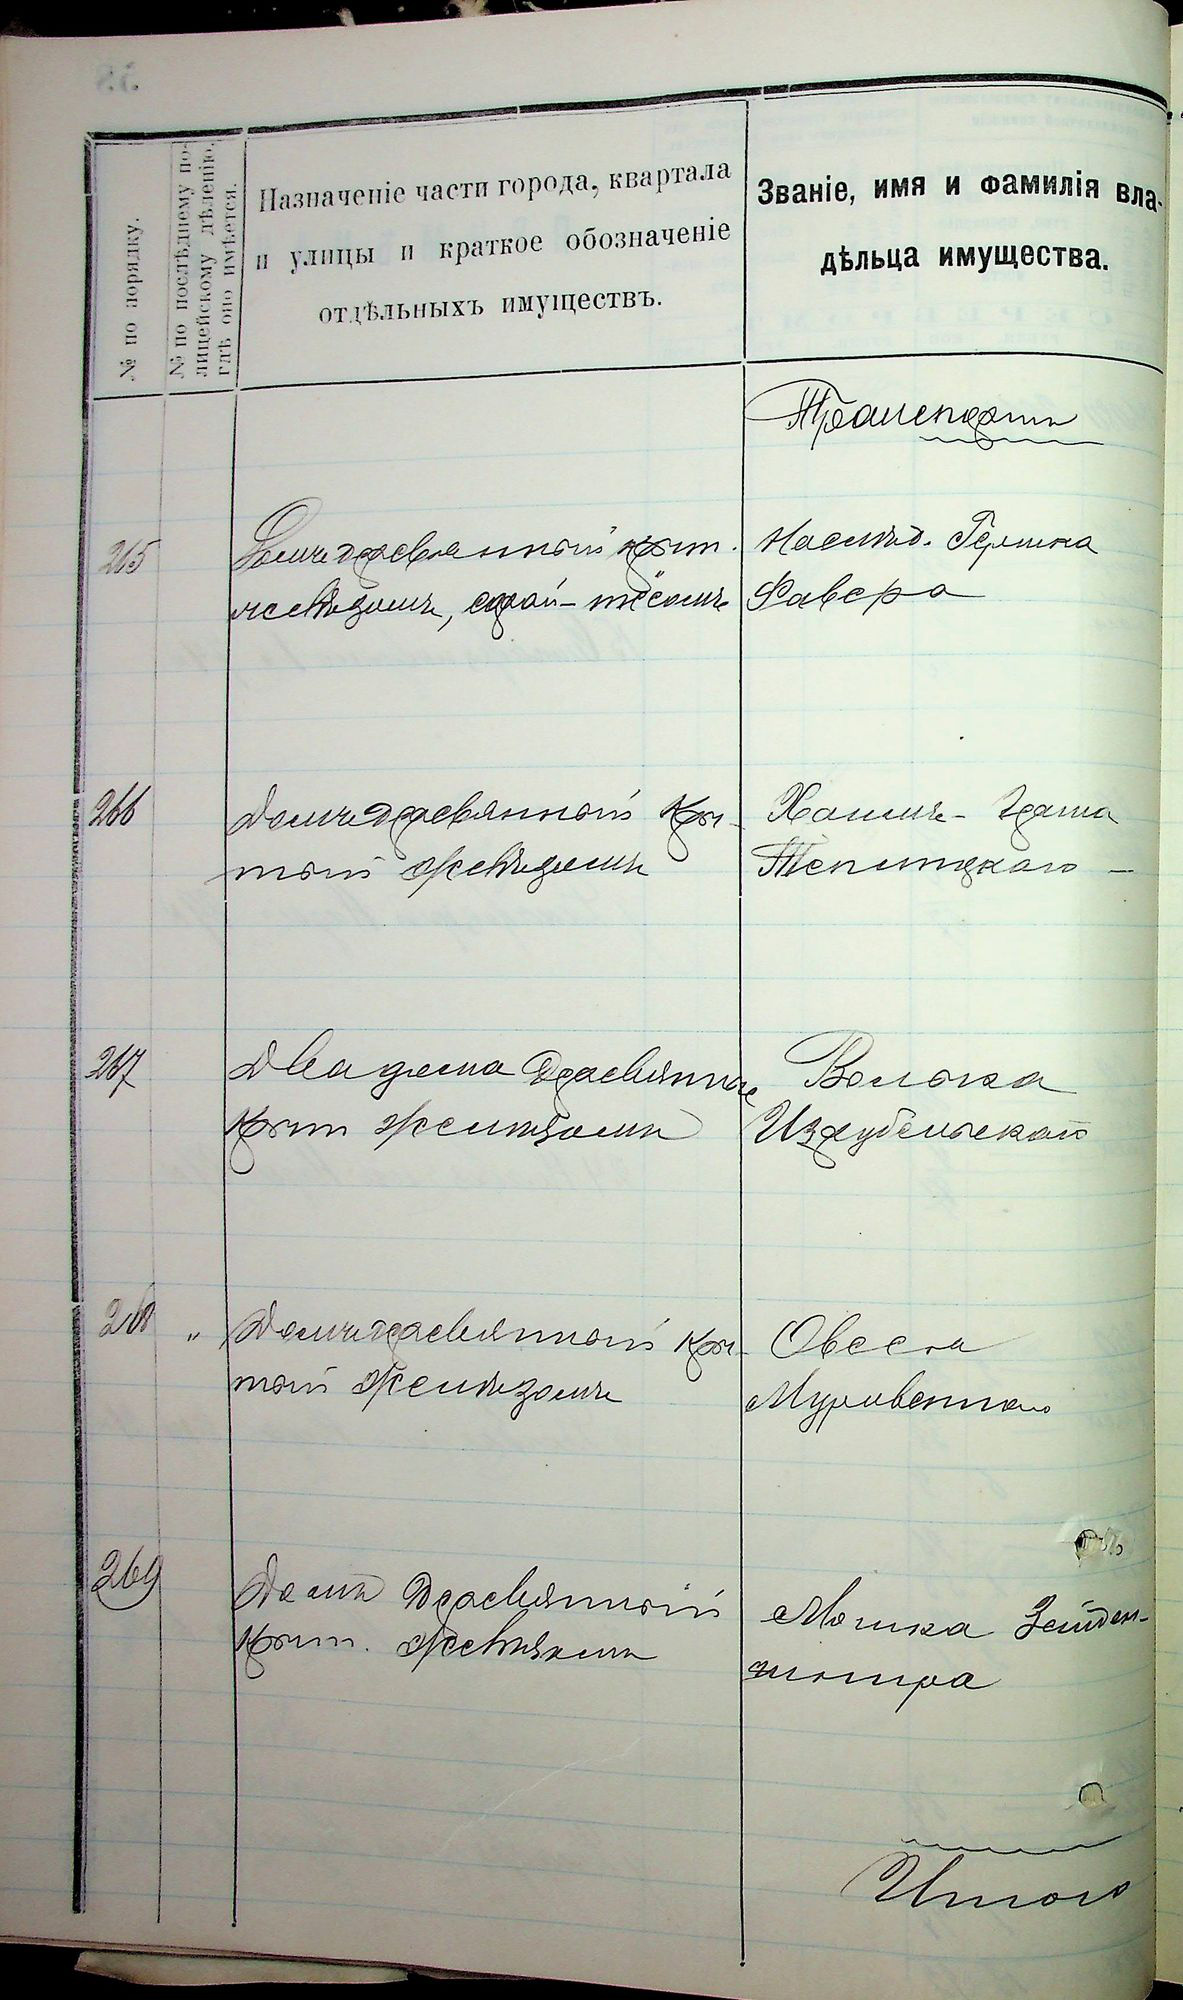 № по порядку.
№ по послѣднему по-
лицейскому дѣленію,
гдѣ оно имѣется.
Назначеніе части города, квартала
и улицы и краткое обозначеніе
отдѣльныхъ имуществъ.
Званіе, имя и фамилія вла-
дѣльца имущества.
Транспортъ
265
Домъ деревянный крыт.
желѣзомъ, сарай - тёсомъ
Наслѣд. Гершка
Фавера
266
Домъ деревянный кры-
тый желѣзомъ
Хаимъ - Герша
Теплицкаго
267
Два дома деревянные
крыт желѣзомъ
Волька
Израубельскаго
268 "
Домъ деревянный кры-
тый желѣзомъ
Овсея
Мурованнаго
269
Домъ деревянный
крыт. желѣзомъ
Мошка Зейден-
шнира
Итого